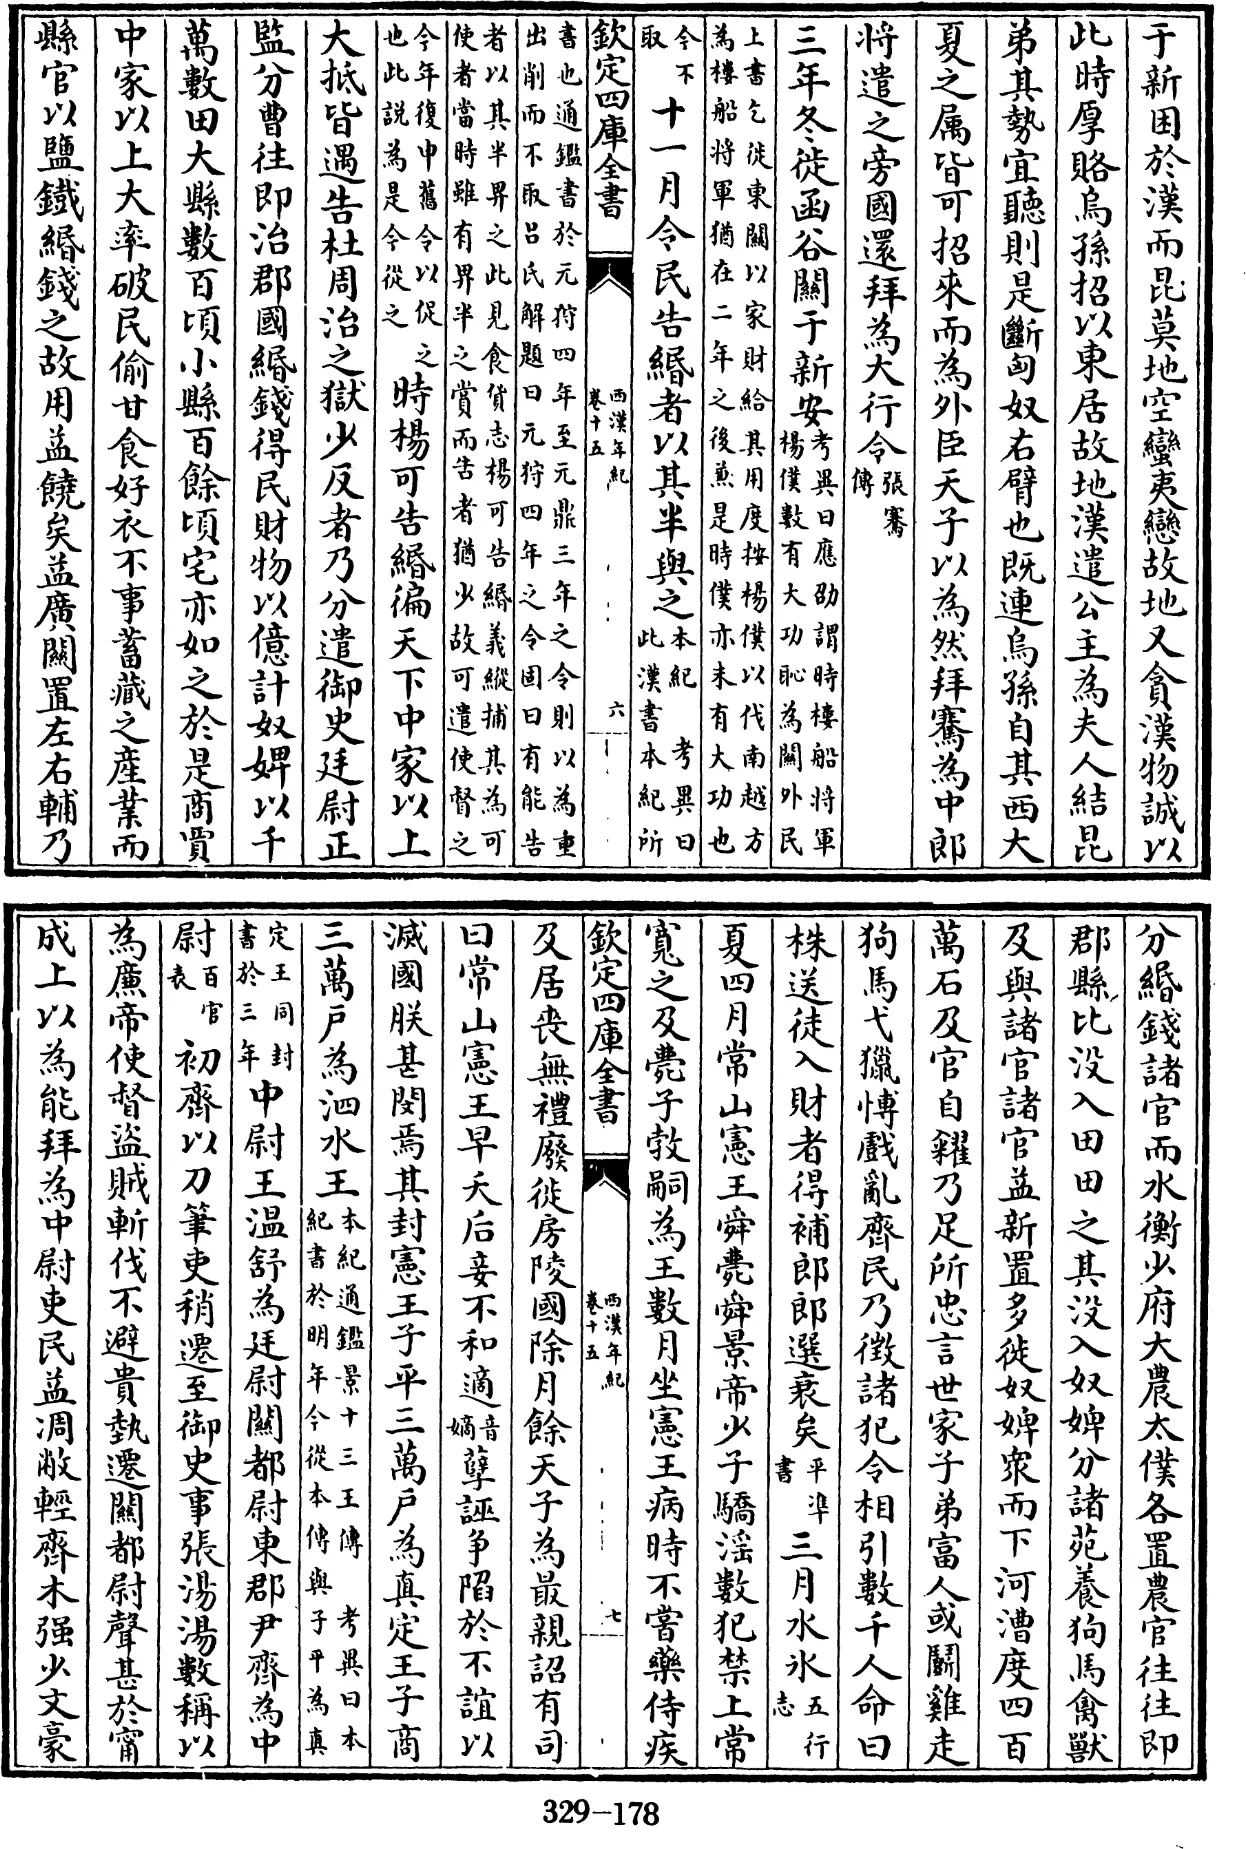 于新困於漢而昆莫地空蠻夷戀故地又貪漢物誠以
此時厚賂烏孫招以東居故地漢遣公主為夫人結昆
弟其勢宜聽則是斷匈奴右臂也既連烏孫自其西大
夏之属皆可招來而為外臣天子以為然拜騫為中郎
将遣之旁國還拜為大行令張騫傳
三年冬徙函谷關于新安考異曰應劭謂時樓船将軍楊僕數有大功恥為關外民
上書乞徙東關以家財給其用度按楊僕以伐南越方為樓船将軍猶在二年之後兼是時僕亦未有大功也
今不取十一月令民告緡者以其半與之本紀考異曰此漢書本紀所
欽定四庫全書 西漢年紀卷十五 六
書也通鑑書於元狩四年至元鼎三年之令則以為重出削而不取吕氏解題曰元狩四年之令固曰有能告
者以其半畀之此見食貨志楊可告緡義縱捕其為可使者當時雖有畀半之賞而告者猶少故可遣使督之
今年復申舊令以促之也此説為是今從之時楊可告緡徧天下中家以上
大抵皆遇告杜周治之獄少反者乃分遣御史廷尉正
監分曹往即治郡國緡錢得民財物以億計奴婢以千
萬數田大縣數百頃小縣百餘頃宅亦如之於是商賈
中家以上大率破民偷甘食好衣不事蓄藏之産業而
縣官以鹽鐵緡錢之故用益饒矣益廣關置左右輔乃
分緡錢諸官而水衡少府大農太僕各置農官往往即
郡縣比没入田田之其没入奴婢分諸苑養狗馬禽獸
及與諸官諸官益新置多徙奴婢衆而下河漕度四百
萬石及官自糴乃足所忠言世家子弟富人或鬭雞走
狗馬弋獵博戲亂齊民乃徴諸犯令相引數千人命曰
株送徒入財者得補郎郎選衰矣平凖書三月水氷五行志
夏四月常山憲王舜薨舜景帝少子驕淫數犯禁上常
寛之及薨子敦嗣為王數月坐憲王病時不嘗藥侍疾
欽定四庫全書 西漢年紀卷十五 七
及居喪無禮廢徙房陵國除月餘天子為最親詔有司
曰常山憲王早夭后妾不和適音嫡孽誣争陷於不誼以
滅國朕甚閔焉其封憲王子平三萬戸為真定王子商
三萬戸為泗水王本紀通鑑景十三王傳考異曰本紀書於明年今從本傳與子平為真
定王同封書於三年中尉王温舒為廷尉關都尉東郡尹齊為中
尉百官表初齊以刀筆吏稍遷至御史事張湯湯數稱以
為亷帝使督盜賊斬伐不避貴執遷關都尉聲甚於甯
成上以為能拜為中尉吏民益凋敝輕齊木强少文豪
329-178